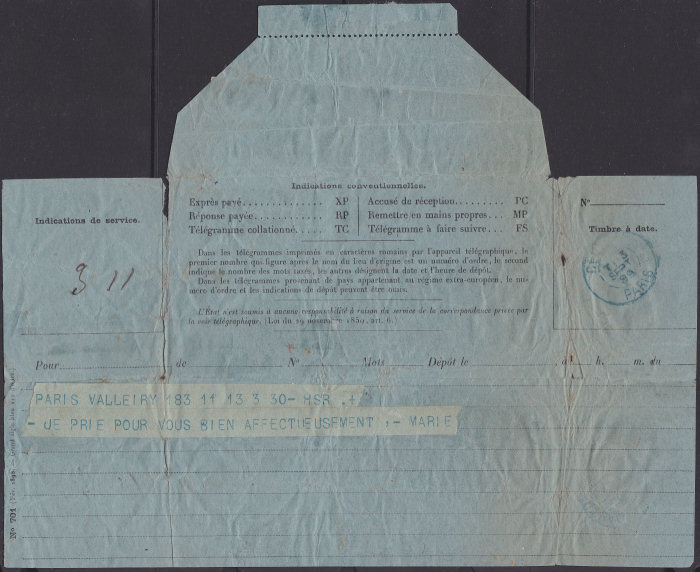 Indications conventionnelles.
Exprès payé.............. XP
Réponse payée............ RP
Télégramme collationné.... TC
Accusé de réception......... PC
Remettre en mains propres... MP
Télégramme à faire suivre... FS
Dans les télégrammes imprimés en caractères romains par l'appareil télégraphique, le
premier nombre qui figure après le nom du lieu d'origine est un numéro d'ordre, le second
indique le nombre des mots taxés, les autres désignent la date et l'heure de dépôt.
Dans les télégrammes provenant de pays appartenant au régime extra-européen, le nu-
méro d'ordre et les indications de dépôt peuvent être omis.
L'État n'est soumis à aucune responsabilité à raison du service de la correspondance privée par
la voie télégraphique. (Loi du 29 novembre 1850, art. 6.)
Indications de service.
3 11
N°
Timbre à date.
PARIS
Pour de N° Mots Dépôt le à h. m. du
PARIS VALLEIRY 183 11 13 3 30- HSR .+
- JE PRIE POUR VOUS BIEN AFFECTUEUSEMENT ,- MARIE
N° 701